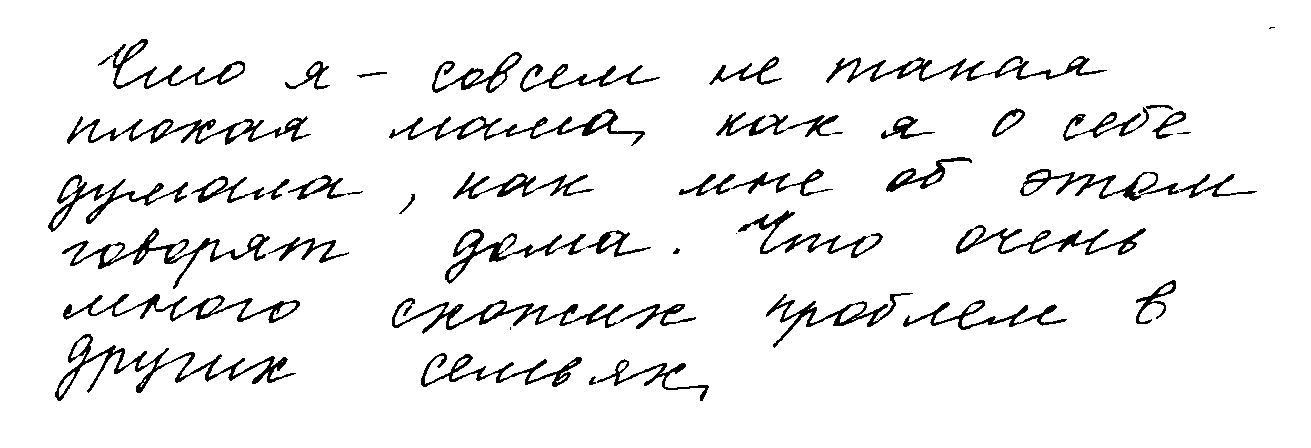 Что я - совсем не такая
плохая мама, как я о себе
думала, как мне об этом
говорят дома. Что очень
много схожих проблем в
других семьях,